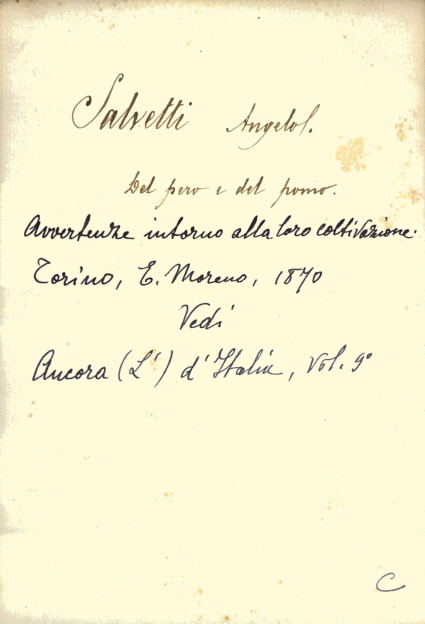 Salvetti Angelol.
Del pero e del pomo.
Avvertenze intorno alla loro coltivazione.
Torino, E. Moreno, 1870
Vedi
Ancora (L') d'Italia, Vol. 9º
C